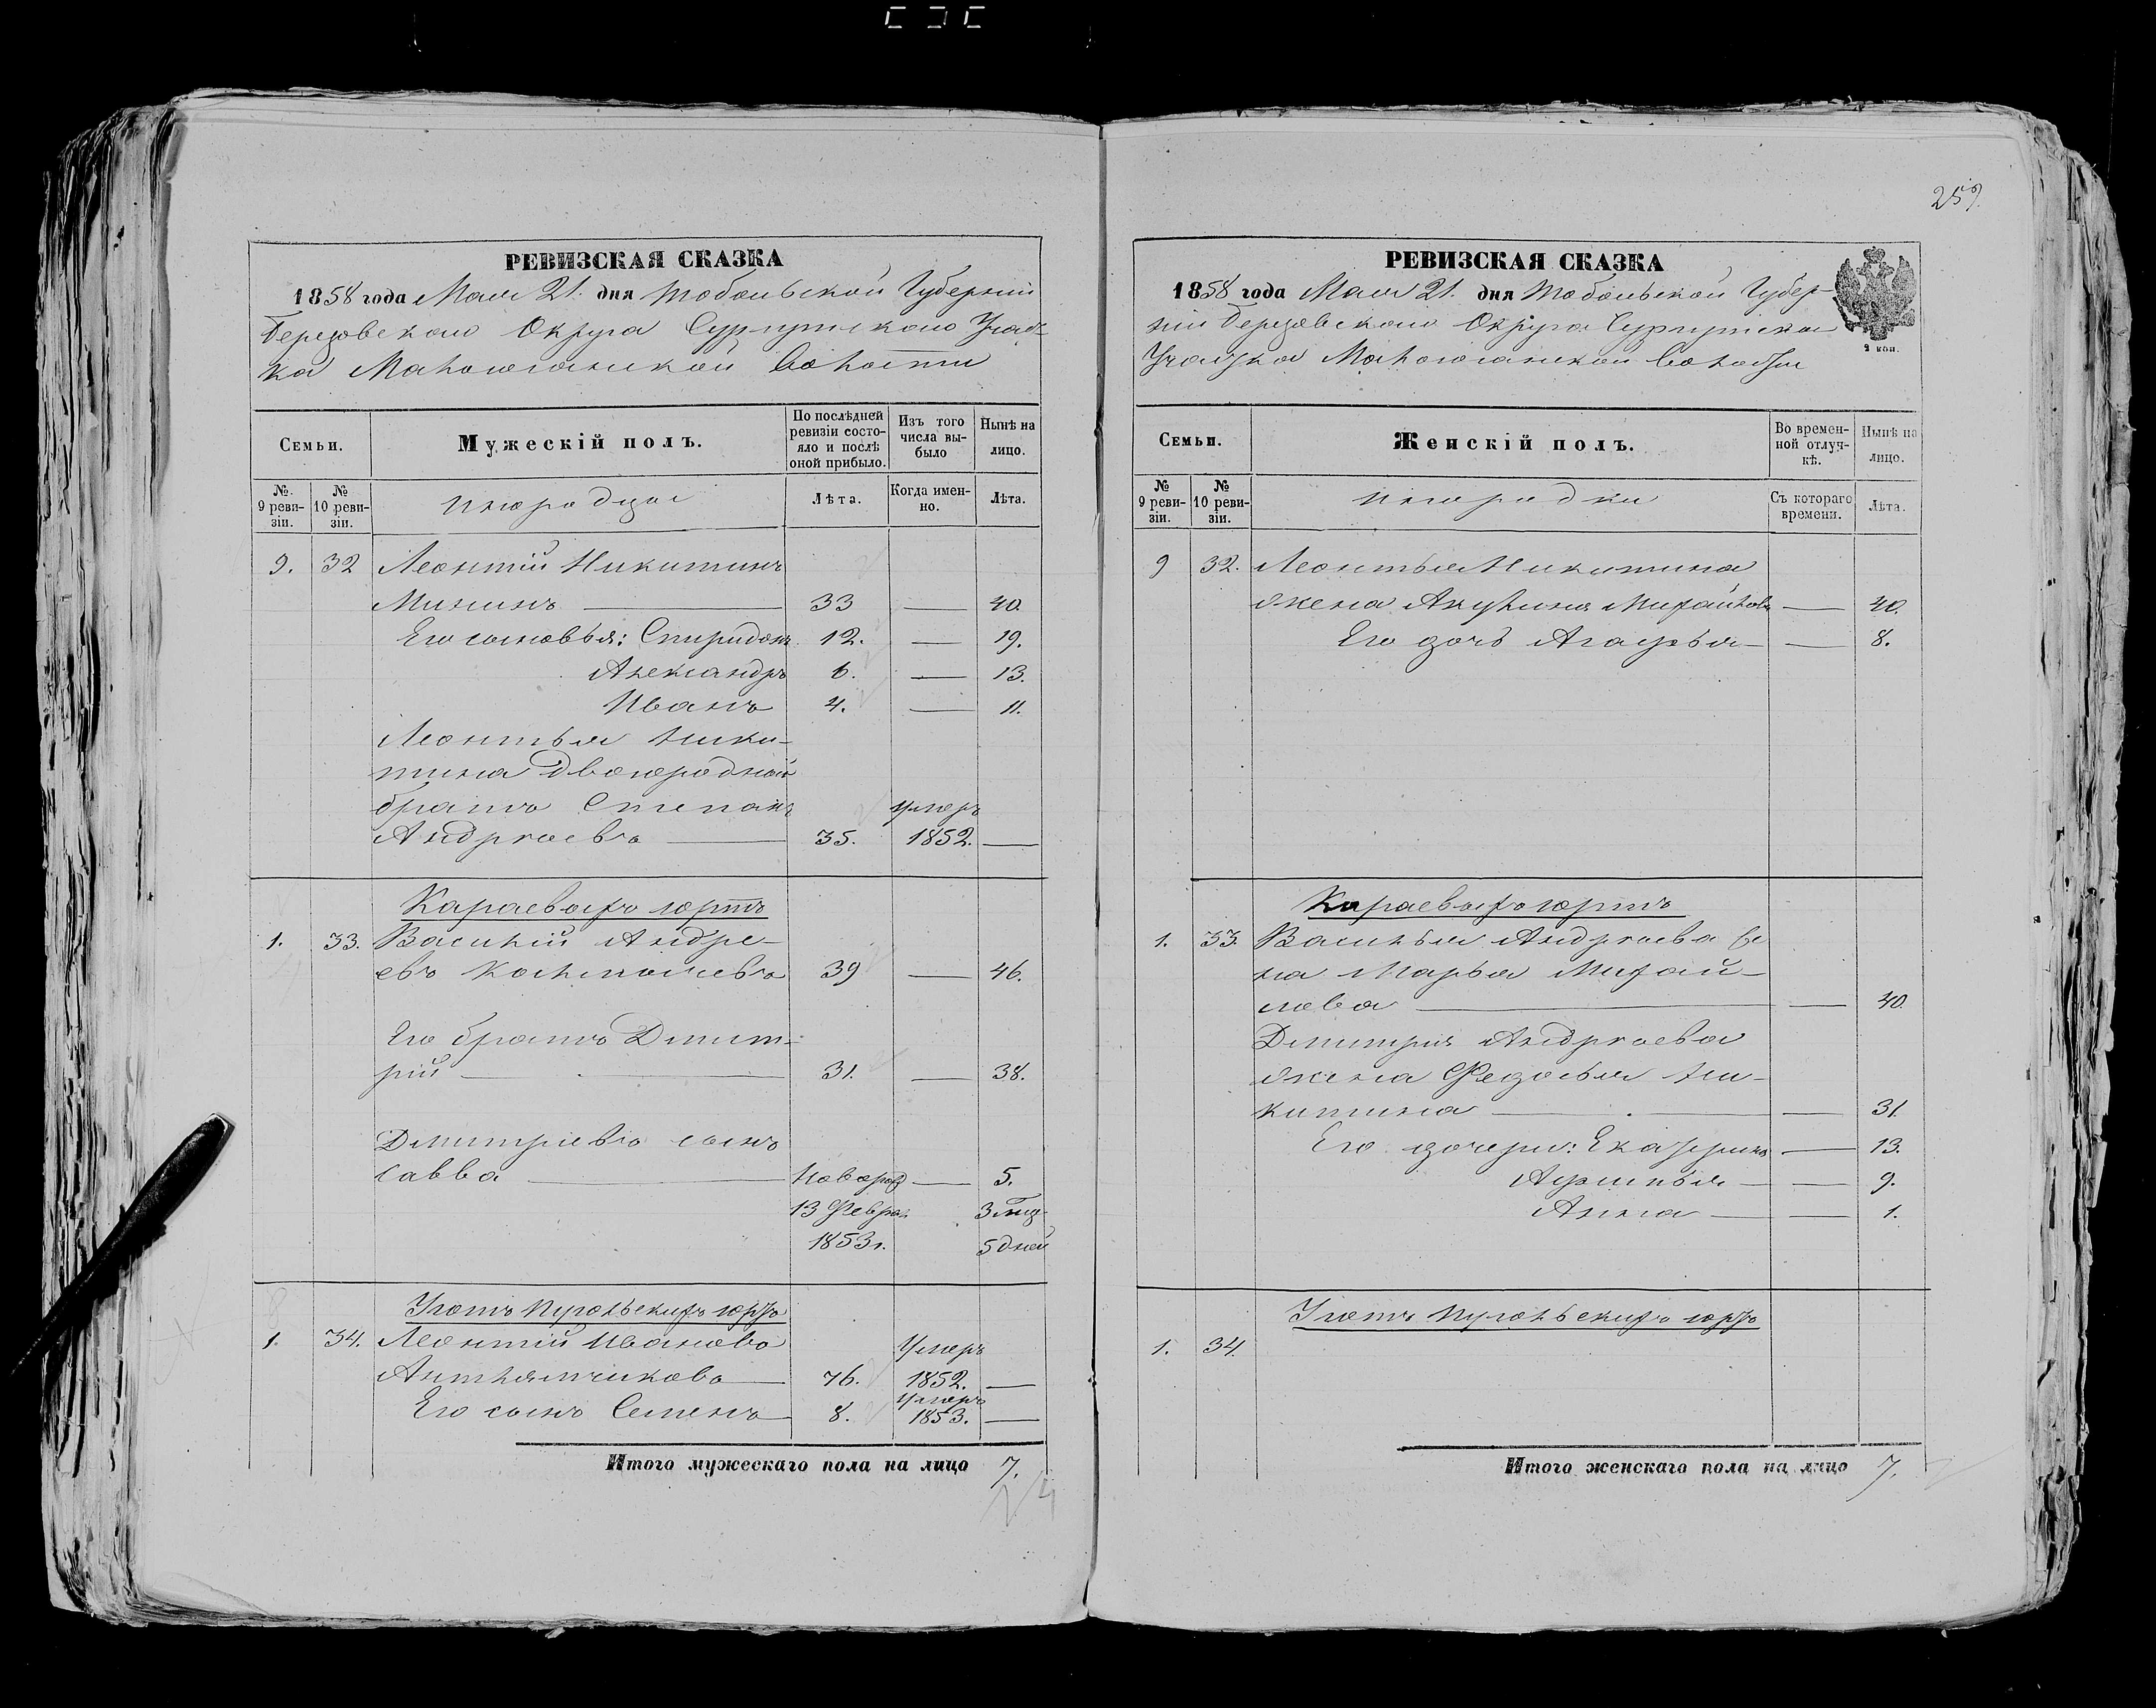 259.
РЕВИЗСКАЯ СКАЗКА
1858 года Мая 21. дня Тобольской Губерніи
Березовскаго Округа Сургутскаго Участ-
ка Малоюганской волости
Семьи.
Мужескій полъ.
По послѣдней ревизіи состо-
яло и послѣ оной прибыло.
Изъ того числа вы-
было
Нынѣ на лицо.
№ 9 реви-
зіи.
№ 10 реви-
зіи.
Инородцы
Лѣта.
Когда имен-
но.
Лѣта.
9. 32 Леонтій Никитинъ
Мининъ 33 — 40.
Его сыновья: Спиридонъ 12. — 19.
Александръ 6. — 13.
Иванъ 4. — 11.
Леонтья Ники-
тина Двоюродный
братъ Степанъ умеръ
Андреевъ 35. 1852. —
Караевыхъ юртъ
1. 33. Василій Андре-
евъ 39 — 46.
Его братъ Дмит-
рій 31. — 38.
Дмитріевъ сынъ
Савва новорож — 5.
13 Февра. 3 мѣц.
1853г. 5 дней
Уготъ юртъ
1. 34. Леонтій Ивановъ Умеръ
76. 1852. —
умеръ
Его сынъ Семенъ 8. 1853. —
Итого мужескаго пола на лицо 7.
РЕВИЗСКАЯ СКАЗКА
1858 года Мая 21. дня Тобольской Губер-
ніи Березовскаго Округа Сургутскаго
Участка Малоюганской волости
2 коп.
Семьи.
Женскій полъ.
Во времен-
ной отлуч-
кѣ.
Нынѣ на лицо.
№ 9 реви-
зіи.
№ 10 реви-
зіи.
Инородки
Съ котораго времени.
Лѣта.
9 32. Леонтья Никитина
жена Акулина Михайлова — 40.
Его дочь Агафья — 8.
Караевыхъ юртъ
1. 33. Василья Андреева же
на Марья Михай-
лова — 40.
Дмитрія Андреева
жена Федосья Ни-
китина — 31.
Его дочери: Екатерина — 13.
— 9.
Анна — 1.
Уготъ юртъ
1. 34.
Итого женскаго пола на лицо 7.